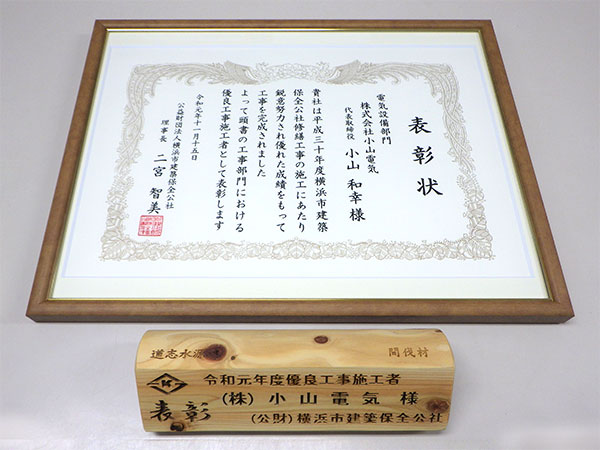 表彰状
電気設備部門
株式会社小山電気
代表取締役 小山 和幸 様
貴社は平成三十年度横浜市建築
保全公社修繕工事の施工にあたり
鋭意努力され優れた成績をもって
工事を完成されました
よって頭書の工事部門における
優良工事施工者として表彰します
令和元年十一月十五日
公益財団法人横浜市建築保全公社
理事長 二宮 智美
道志水源
間伐材
令和元年度優良工事施工者
表彰
(株) 小山電気 様
(公財)横浜市建築保全公社